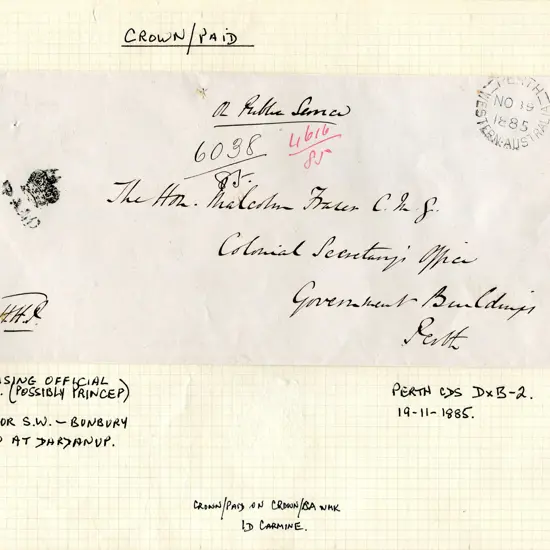 CROWN/PAID
On Public Service
6038
85.
4616
85
PERTH
NO 19
1885
WESTERN-AUSTRALIA
PAID
The Hon. Malcolm Fraser C.M.G.
Colonial Secretary's Office
Government Buildings
Perth
H.H.P.
SING OFFICIAL
. (POSSIBLY PRINCEP)
OR S.W. - BUNBURY
AT DARDANUP.
PERTH CDS DxB-2.
19-11-1885.
CROWN/PAID ON CROWN/
1D CARMINE.